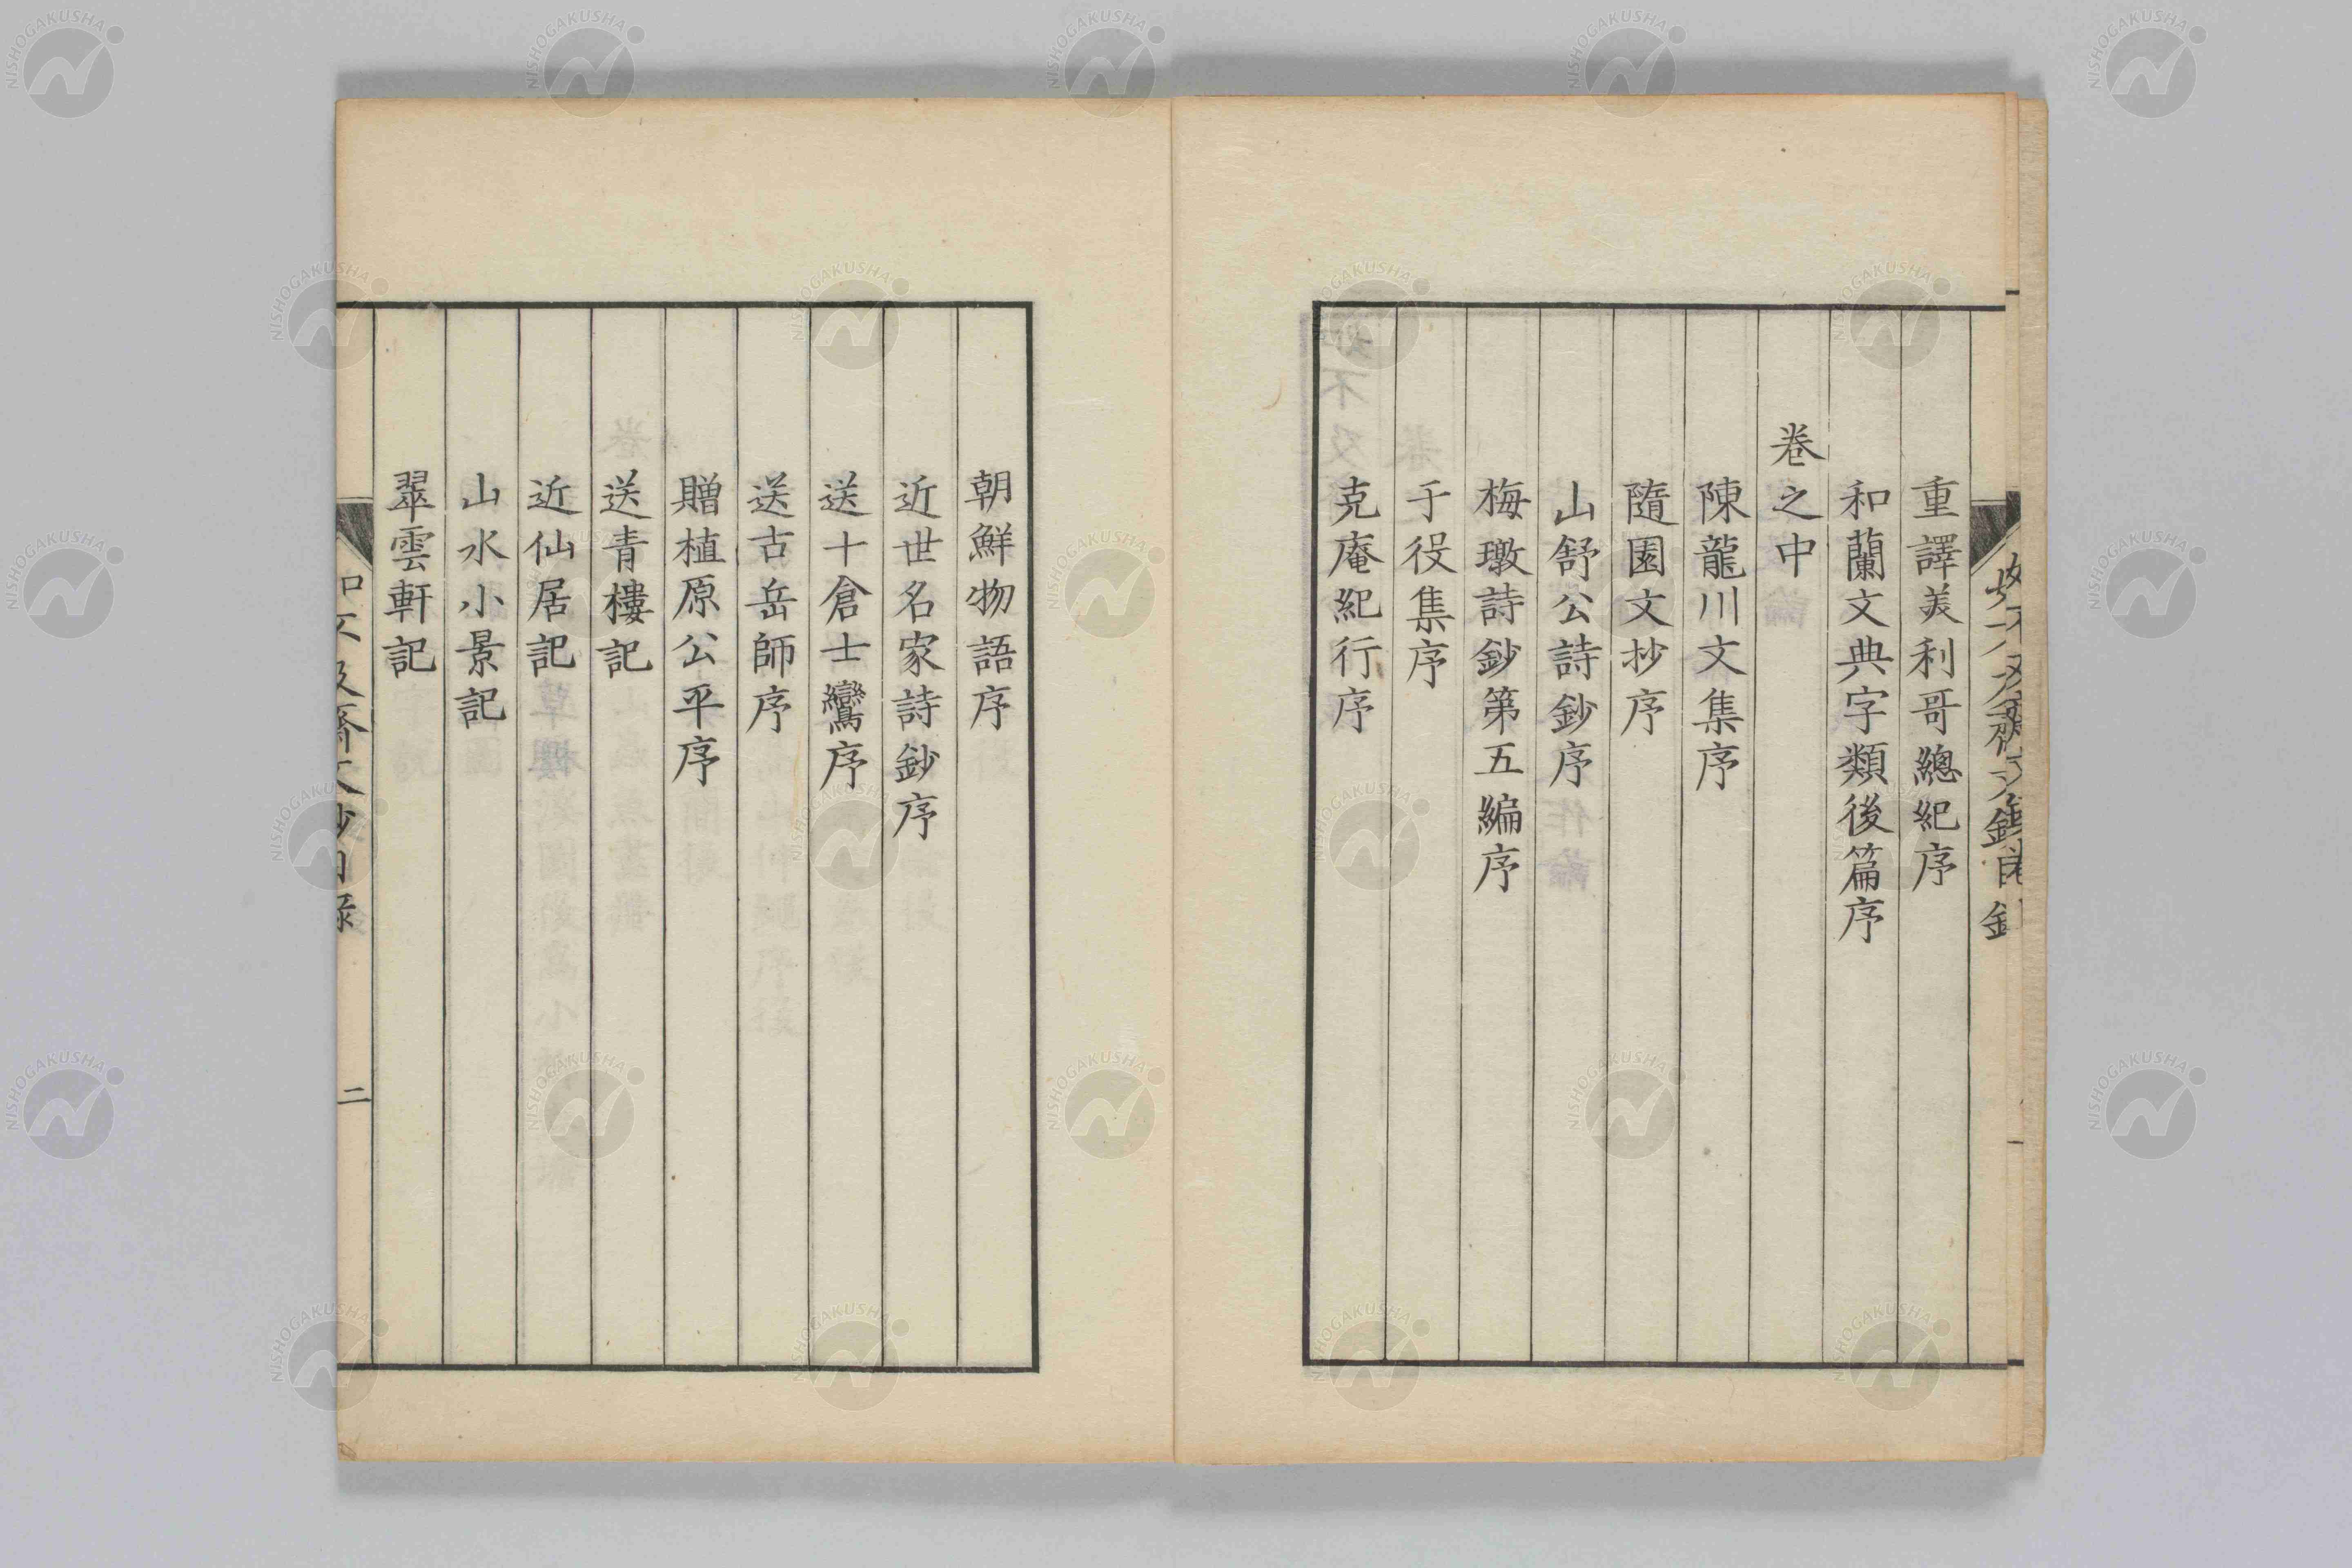 重譯美利哥總紀序
和蘭文典字類後篇序
卷之中
陳龍川文集序
隨園文抄序
山舒公詩鈔序
梅墩詩鈔第五編序
于役集序
克庵紀行序
朝鮮物語序
近世名家詩鈔序
送十倉士鸞序
送古岳師序
贈植原公平序
送青樓記
近仙居記
山水小景記
翠雲軒記
二
NISHOGAKUSHA